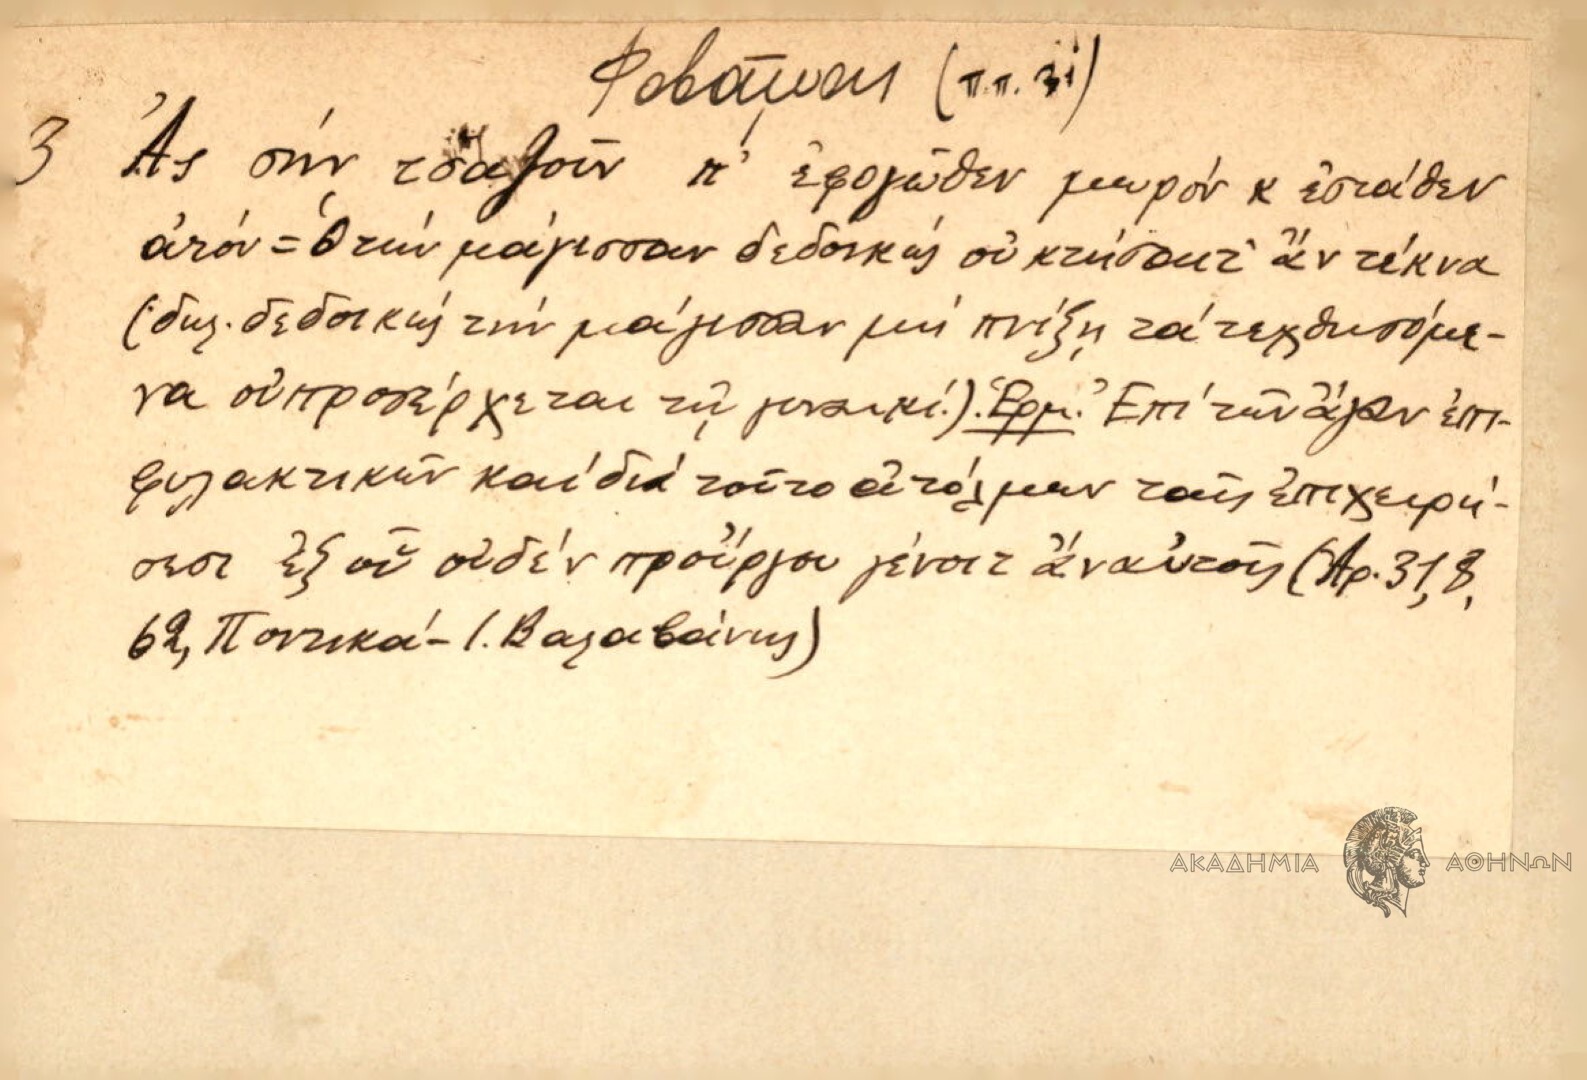 Φοβᾶμαι (π.π. 31)
3 Ἀς σήν τσαζοῦν π' ἐφογώθεν μωρόν κ ἐστάθεν
ἀτόν = Ὁ τήν μάγισσαν δεδοικώς οὐ κτήσαιτ' ἄν τέκνα
(δηλ. δεδοικώς τήν μάγισσαν μή πνίξῃ τά τεχθησόμε-
να οὐ προσέρχεται τῇ γυναικί.). Ἑρμ. Ἐπί τῶν ἄγαν ἐπι-
φυλακτικῶν καί διά τοῦτο ἀτόλμων ταῖς ἐπιχειρή-
σεσι ἐξ οὗ οὐδέν προὔργου γένοιτ ἄν αὐτοῖς (Ἀρ. 31, 8,
62, Ποντικά - Ι. Βαλαβάνης)
ΑΚΑΔΗΜΙΑ ΑΘΗΝΩΝ